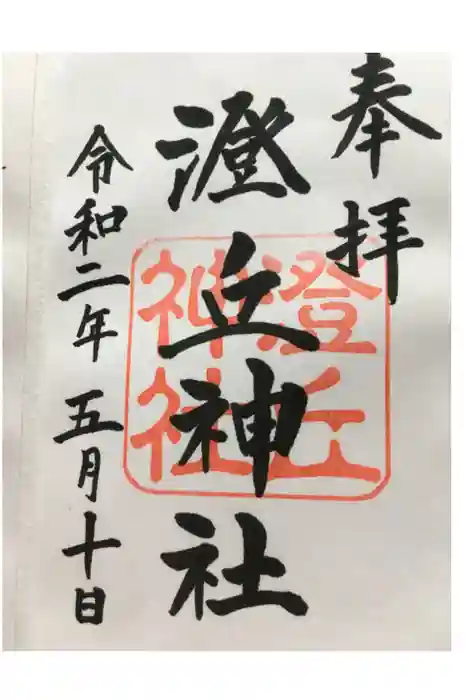 奉拝
澄丘神社
澄丘
神社
令和二年五月十日